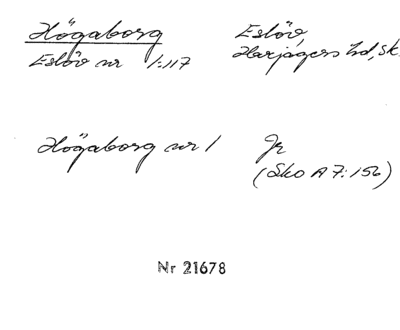 Högaborg Eslöv,
Eslöv nr 1:117 Harjagers hd, sk.
Högaborg nr 1 Jr
(Sko A 7:156)
Nr 21678